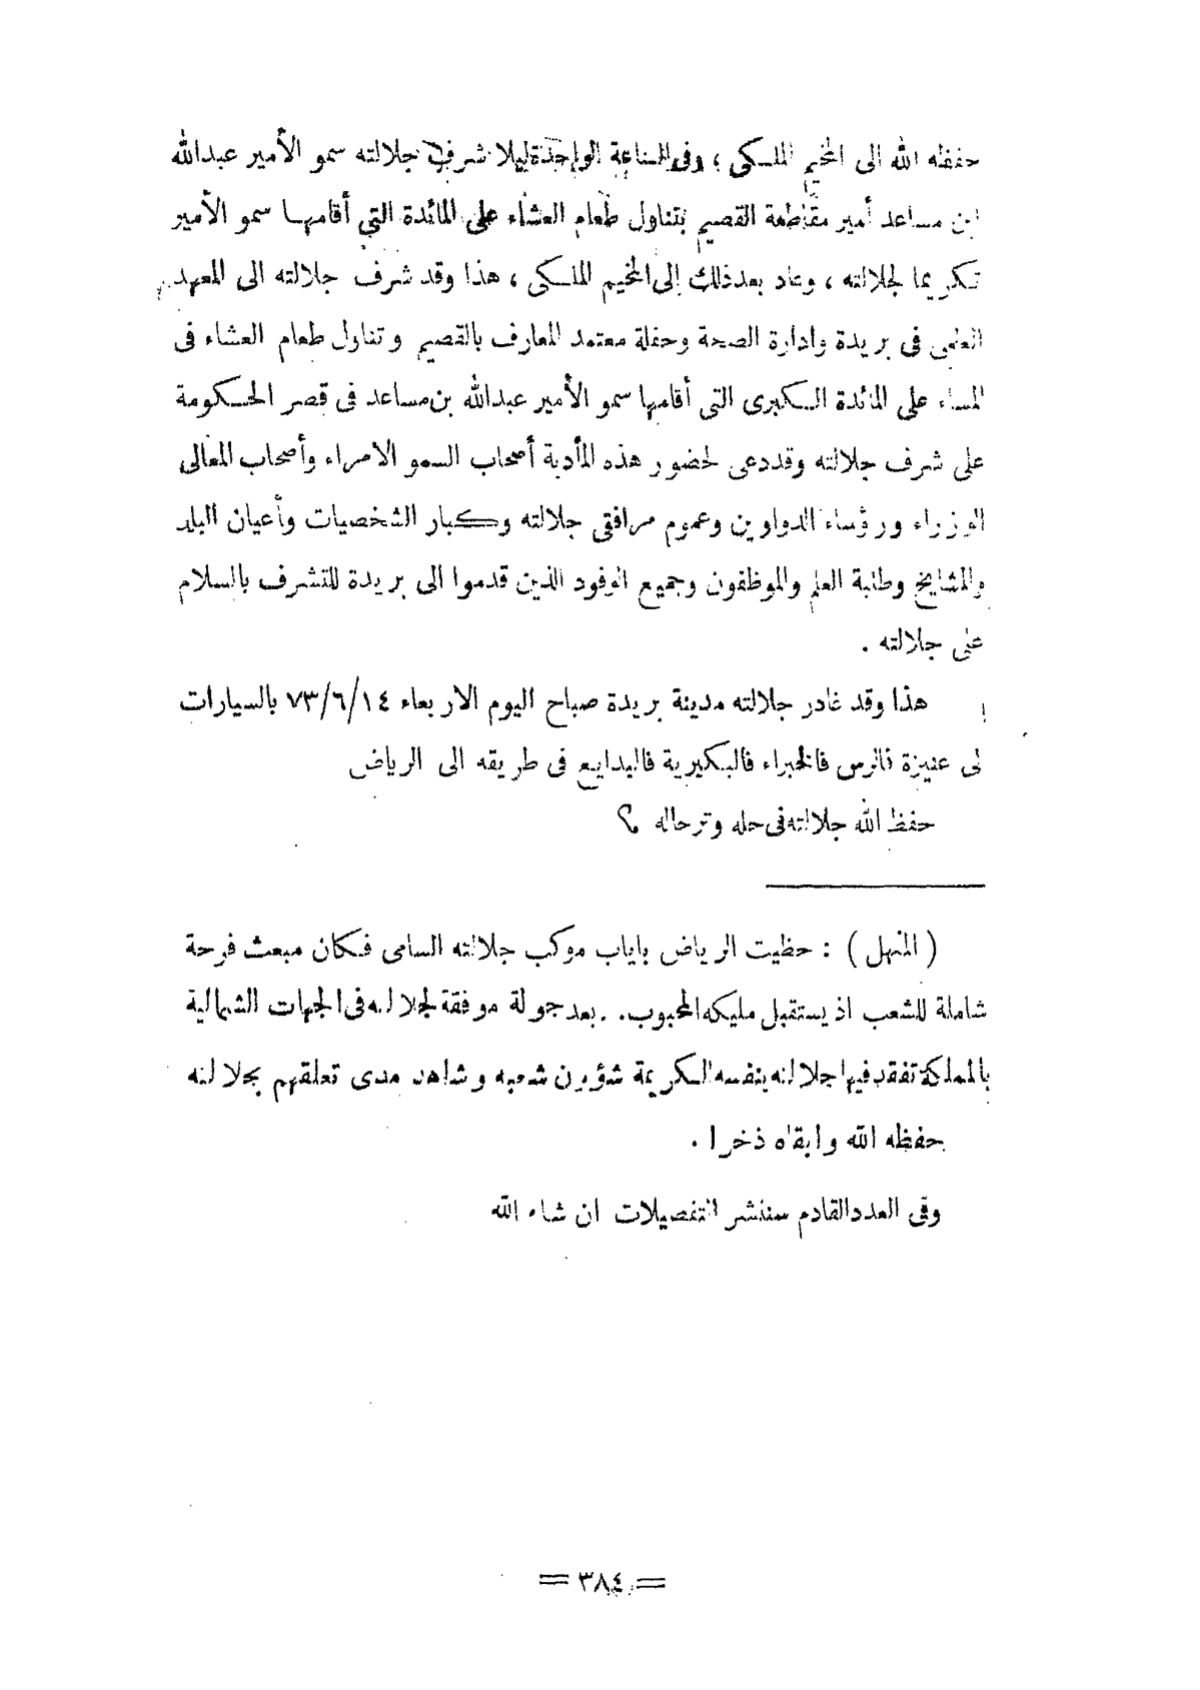 حفظه الله الى المخيم الملكى ؛ وفى الساعة الواحدة ليلا شرف جلالته سمو الأمير عبدالله
ابن مساعد أمير مقاطعة القصيم بتناول طعام العشاء على المائدة التي أقامها سمو الأمير
تكريما لجلالته ، وعاد بعد ذلك إلى المخيم الملكى ، هذا وقد شرف جلالته الى المعهد
العلمى فى بريدة وادارة الصحة وحفلة معتمد المعارف بالقصيم وتناول طعام العشاء فى
المساء على المائدة الكبرى التى أقامها سمو الأمير عبدالله بن مساعد فى قصر الحكومة
على شرف جلالته وقد دعى لحضور هذه المأدبة أصحاب السمو الامراء وأصحاب المعالى
الوزراء ورؤساء الدواوين وعموم مرافقى جلالته وكبار الشخصيات وأعيان البلد
والمشايخ وطلبة العلم والموظفون وجميع الوفود الذين قدموا الى بريدة للتشرف بالسلام
على جلالته .
هذا وقد غادر جلالته مدينة بريدة صباح اليوم الاربعاء ٧٣/٦/١٤ بالسيارات
إلى عنيزة فالرس فالخبراء فالبكيرية فالبدايع فى طريقه الى الرياض
حفظ الله جلالته فى حله وترحاله ؟
( المنهل ) : حظيت الرياض باياب موكب جلالته السامى فكان مبعث فرحة
شاملة للشعب اذ يستقبل مليكه المحبوب. . بعد جولة موفقة لجلالته فى الجهات الشمالية
بالمملكة تفقد فيها جلالته بنفسه الكريمة شؤون شعبه وشاهد مدى تعلقهم بجلالته
حفظه الله وابقاه ذخرا .
وفى العدد القادم سننشر التفصيلات ان شاء الله
= ٣٨٤ =